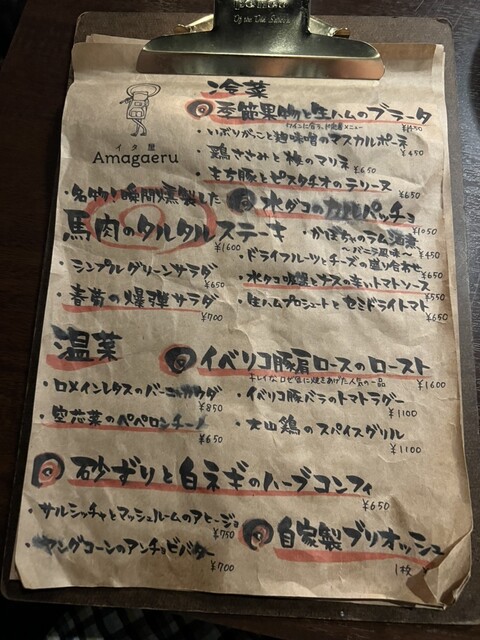 冷菜
季節果物と生ハムのブラータ
いぶりがっこと麹味噌のマスカルポーネ
¥450
鶏ささみと梅のマリネ
¥650
もち豚とピスタチオのテリーヌ
¥650
イタ屋
Amagaeru
名物!瞬間燻製した
馬肉のタルタルステーキ
¥1600
水ダコのカルパッチョ
¥1050
かぼちゃのラム酒煮
〜バニラ風味〜
¥450
シンプルグリーンサラダ
¥650
ドライフルーツとチーズの盛り合わせ
¥650
春菊の爆弾サラダ
¥700
生ハムプロシュートとセミドライトマト
¥650
温菜
イベリコ豚肩ロースのロースト
¥1600
ロメインレタスのバーニャカウダ
¥850
イベリコ豚バラのトマトラグー
¥1100
空芯菜のペペロンチーノ
¥650
大山鶏のスパイスグリル
¥1100
砂ずりと白ネギのハーブコンフィ
¥650
サルシッチャとマッシュルームのアヒージョ
¥750
自家製ブリオッシュ
1枚 ¥
ヤングコーンのアンチョビバター
¥700